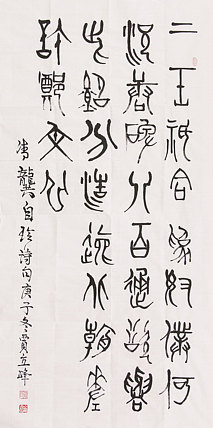 二王祇合為奴僕何
況唐碑八百通欲與
此銘分浩逸北朝差
許鄭文公
龔自珍詩句庚子冬賈